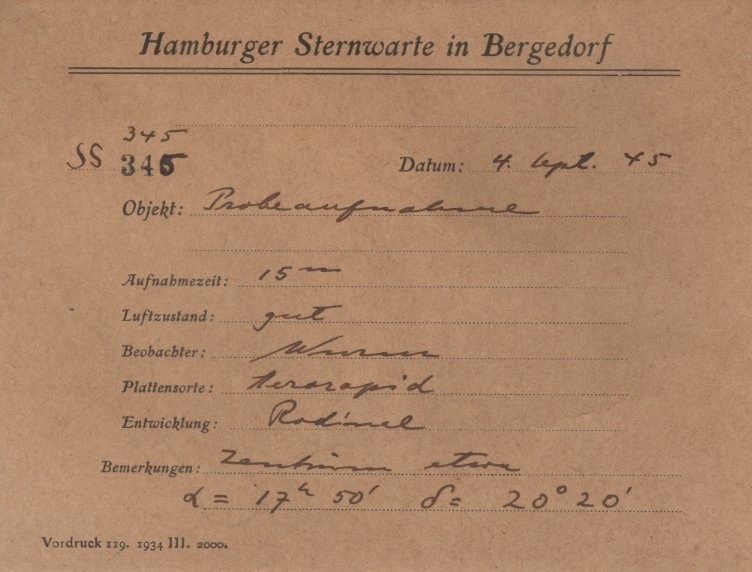 Hamburger Sternwarte in Bergedorf
345
SS 345
Datum: 4. Sept. 45
Objekt: Probeaufnahme
Aufnahmezeit: 15 m
Luftzustand: gut
Beobachter: Wurm
Plattensorte: Aerorapid
Entwicklung: Rodinal
Bemerkungen: Zentrum etwa
α = 17h 50' δ = 20° 20'
Vordruck 119. 1934 III. 2000.